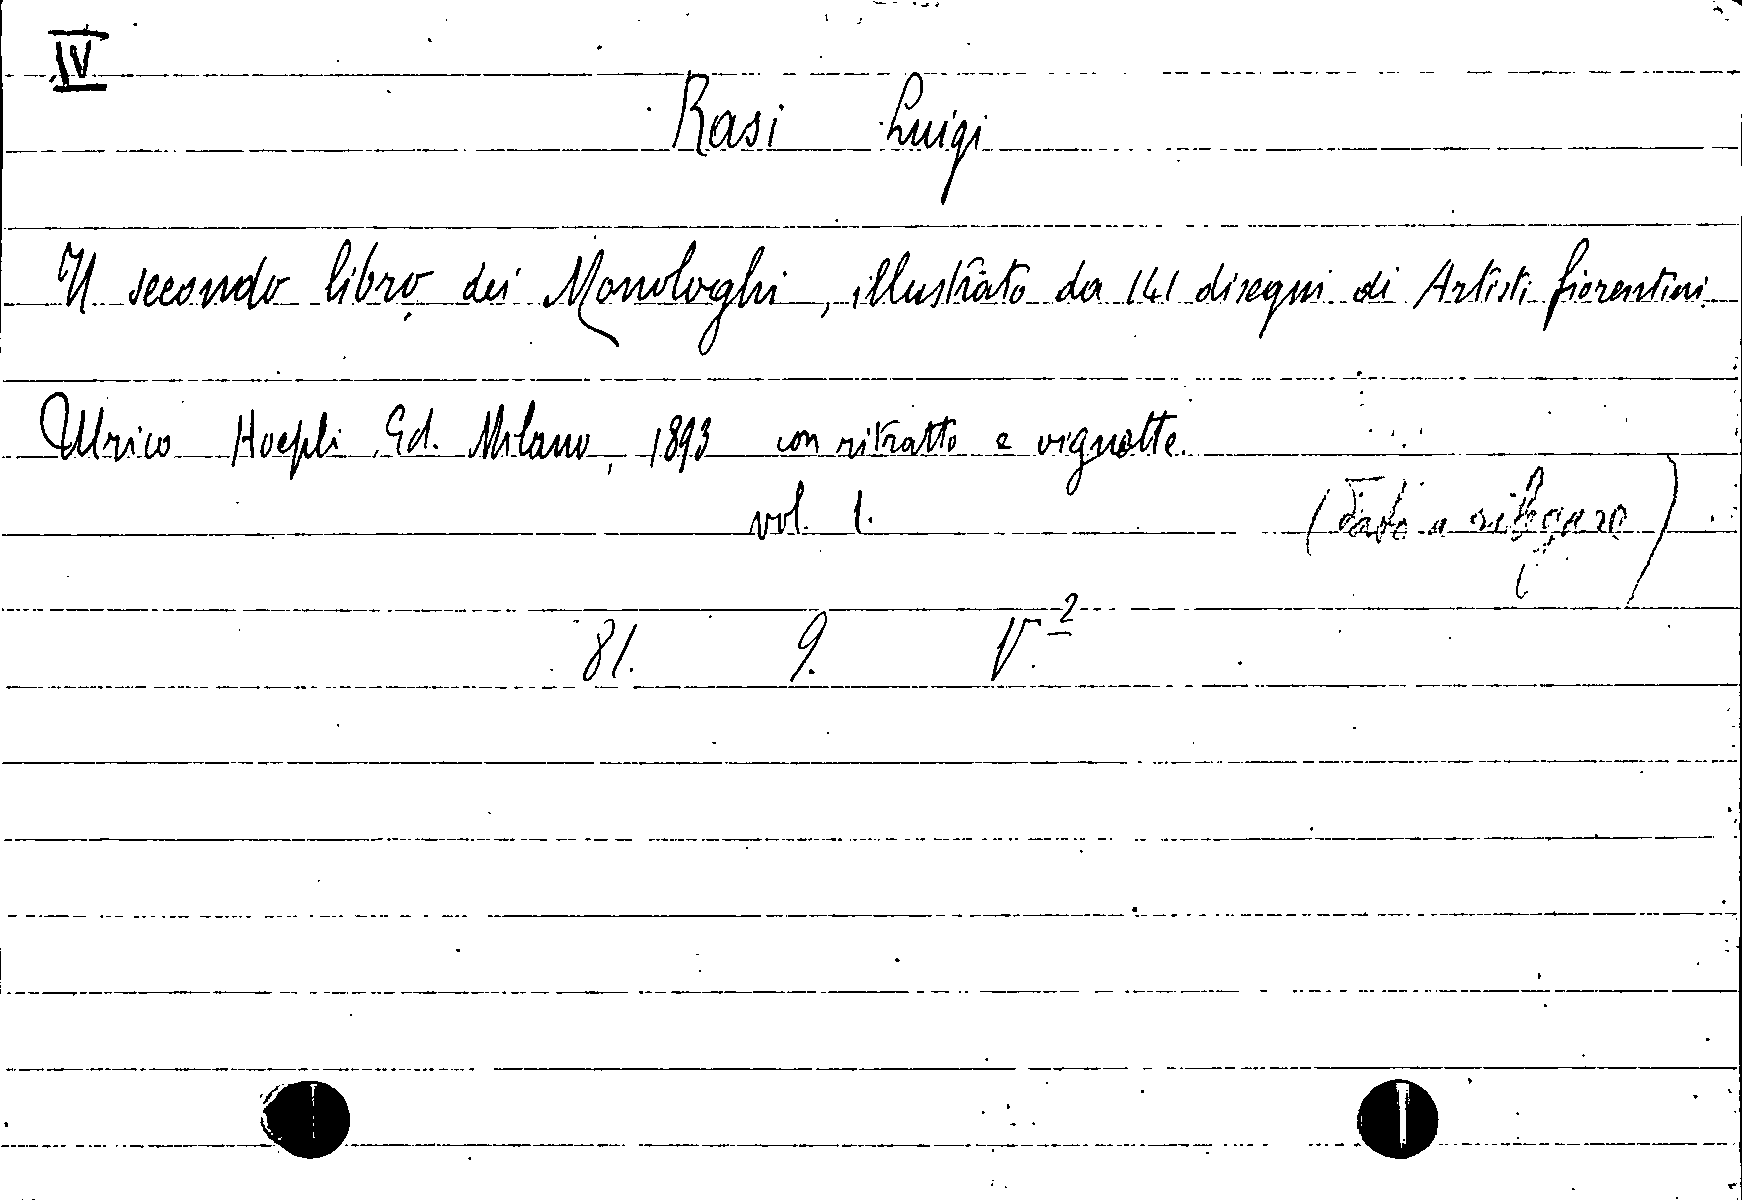 IV
Rasi Luigi
Il secondo libro dei Monologhi, illustrato da 141 disegni di Artisti fiorentini.
Ulrico Hoepli Ed. Milano, 1893 con ritratto e vignette.
vol. 1. (Dato a rilegare)
81. 9. V.2